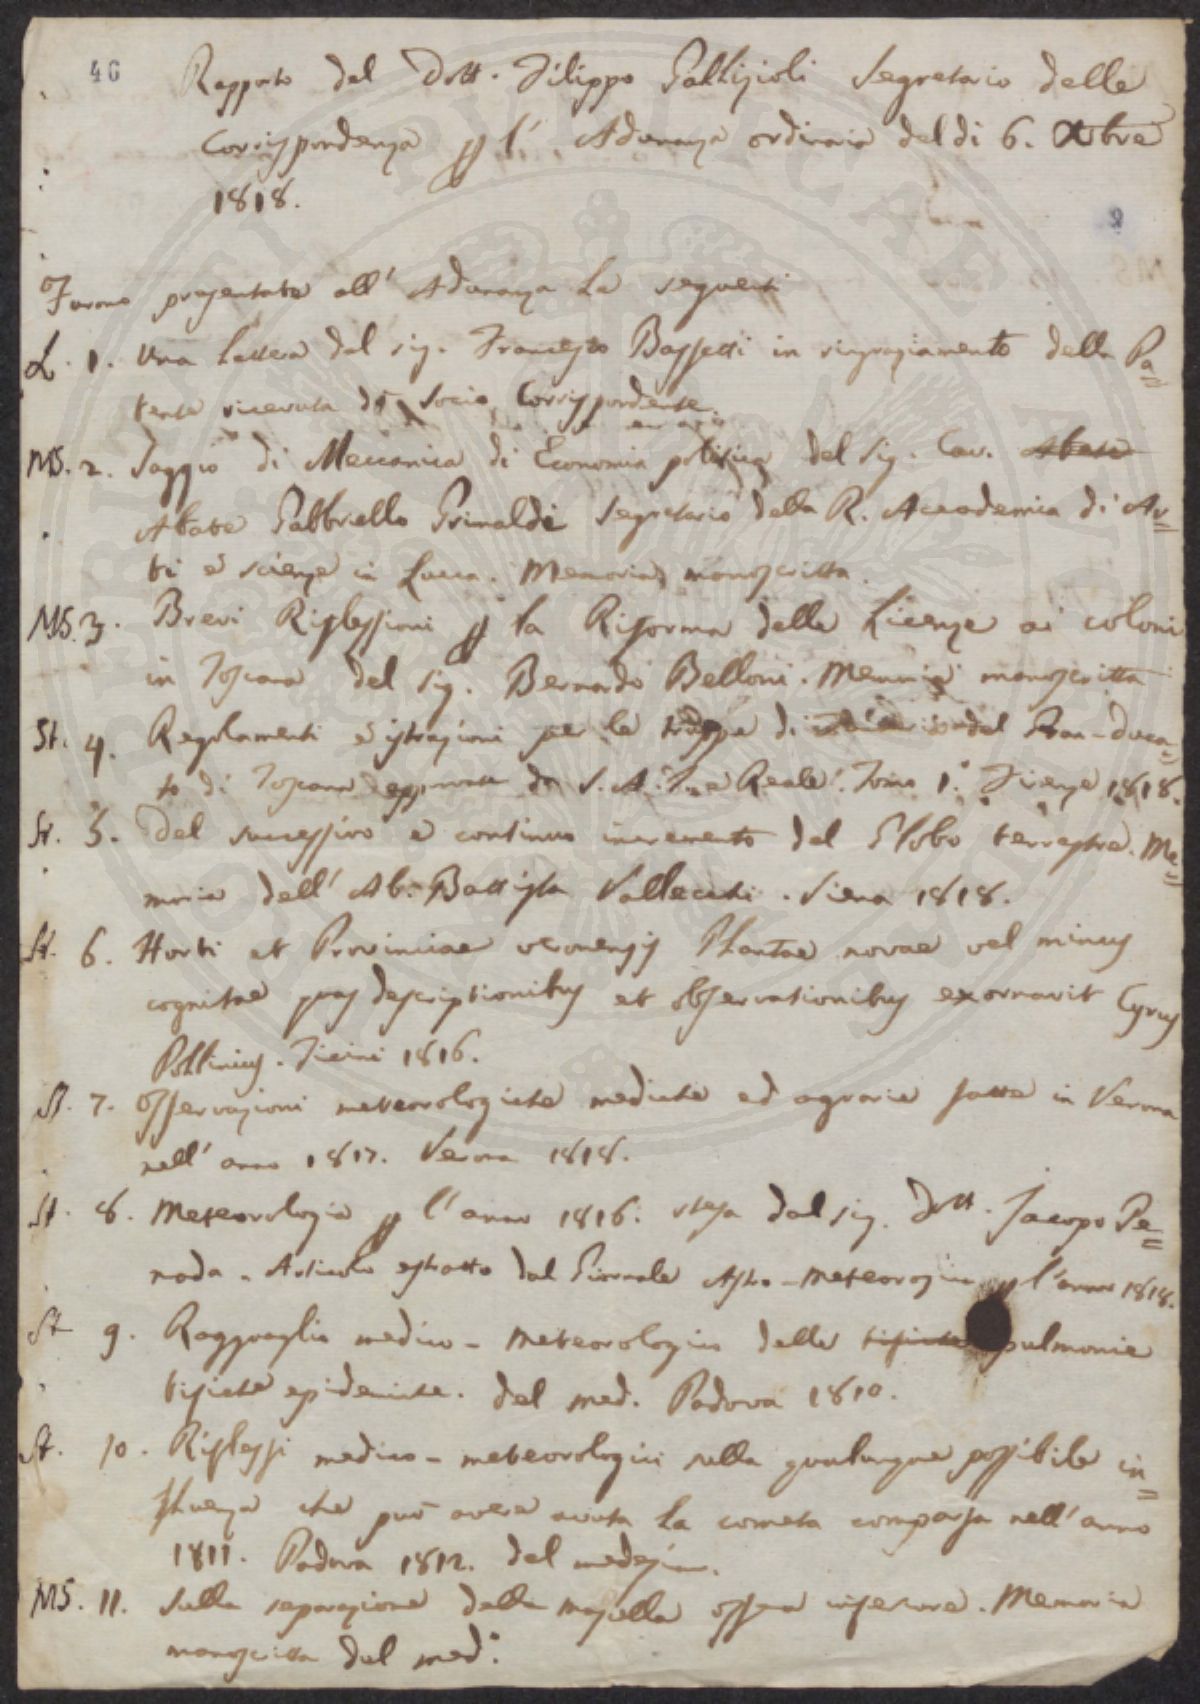 46
Rapporto del Dott. Filippo Gallizioli Segretario delle
Corrispondenze p l' Adunanza ordinaria del dì 6. Xbre
1818.
9
Furono presentate all' Adunanza le seguenti
L. 1. Una Lettera del sig. Francesco Bassetti in ringraziamento della Pa=
tente ricevuta di Socio Corrispondente.
MS. 2. Saggio di Meccanica di Economia politica del Sig. Cav. Abate
Abate Gabbriello Grimaldi Segretario della R. Accademia di Ar=
ti e scienze in Lucca. Memoria manoscritta.
MS. 3. Brevi Riflessioni p la Riforma delle Licenze ai coloni
in Toscana del Sig. Bernardo Belloni. Memoria manoscritta
St. 4. Regolamenti e istruzioni per le truppe di del Gran-duca=
to di Toscana approvate da S. A. I. e Reale. Tomo 1.° Firenze 1818.
St. 5. Del successivo e continuo incremento del Globo terrestre. Me=
moria dell' Ab. Battista Vallecchi. Siena 1818.
St. 6. Horti et Provinciae veronensis Plantae novae vel minus
cognitae quas descriptionibus et observationibus exornavit Cyrus
Pollinius. Ticini 1816.
St. 7. Osservazioni meteorologiche mediche ed agrarie fatte in Verona
nell' anno 1817. Verona 1818.
St. 8. Meteorologia p l' anno 1816. stesa dal sig. Dott. Jacopo Pe=
nada. Articolo estratto dal Giornale Astro-meteorologico p l' anno 1818.
St. 9. Ragguaglio medico-meteorologico delle tisiche pulmonie
tisiche epidemiche. del med. Padova 1810.
St. 10. Riflessi medico-meteorologici sulla qualunque possibile in=
fluenza che può avere avuta la cometa comparsa nell' anno
1811. Padova 1812. del medesimo.
MS. 11. Sulla separazione della mascella ossea inferiore. Memoria
manoscritta del med.°